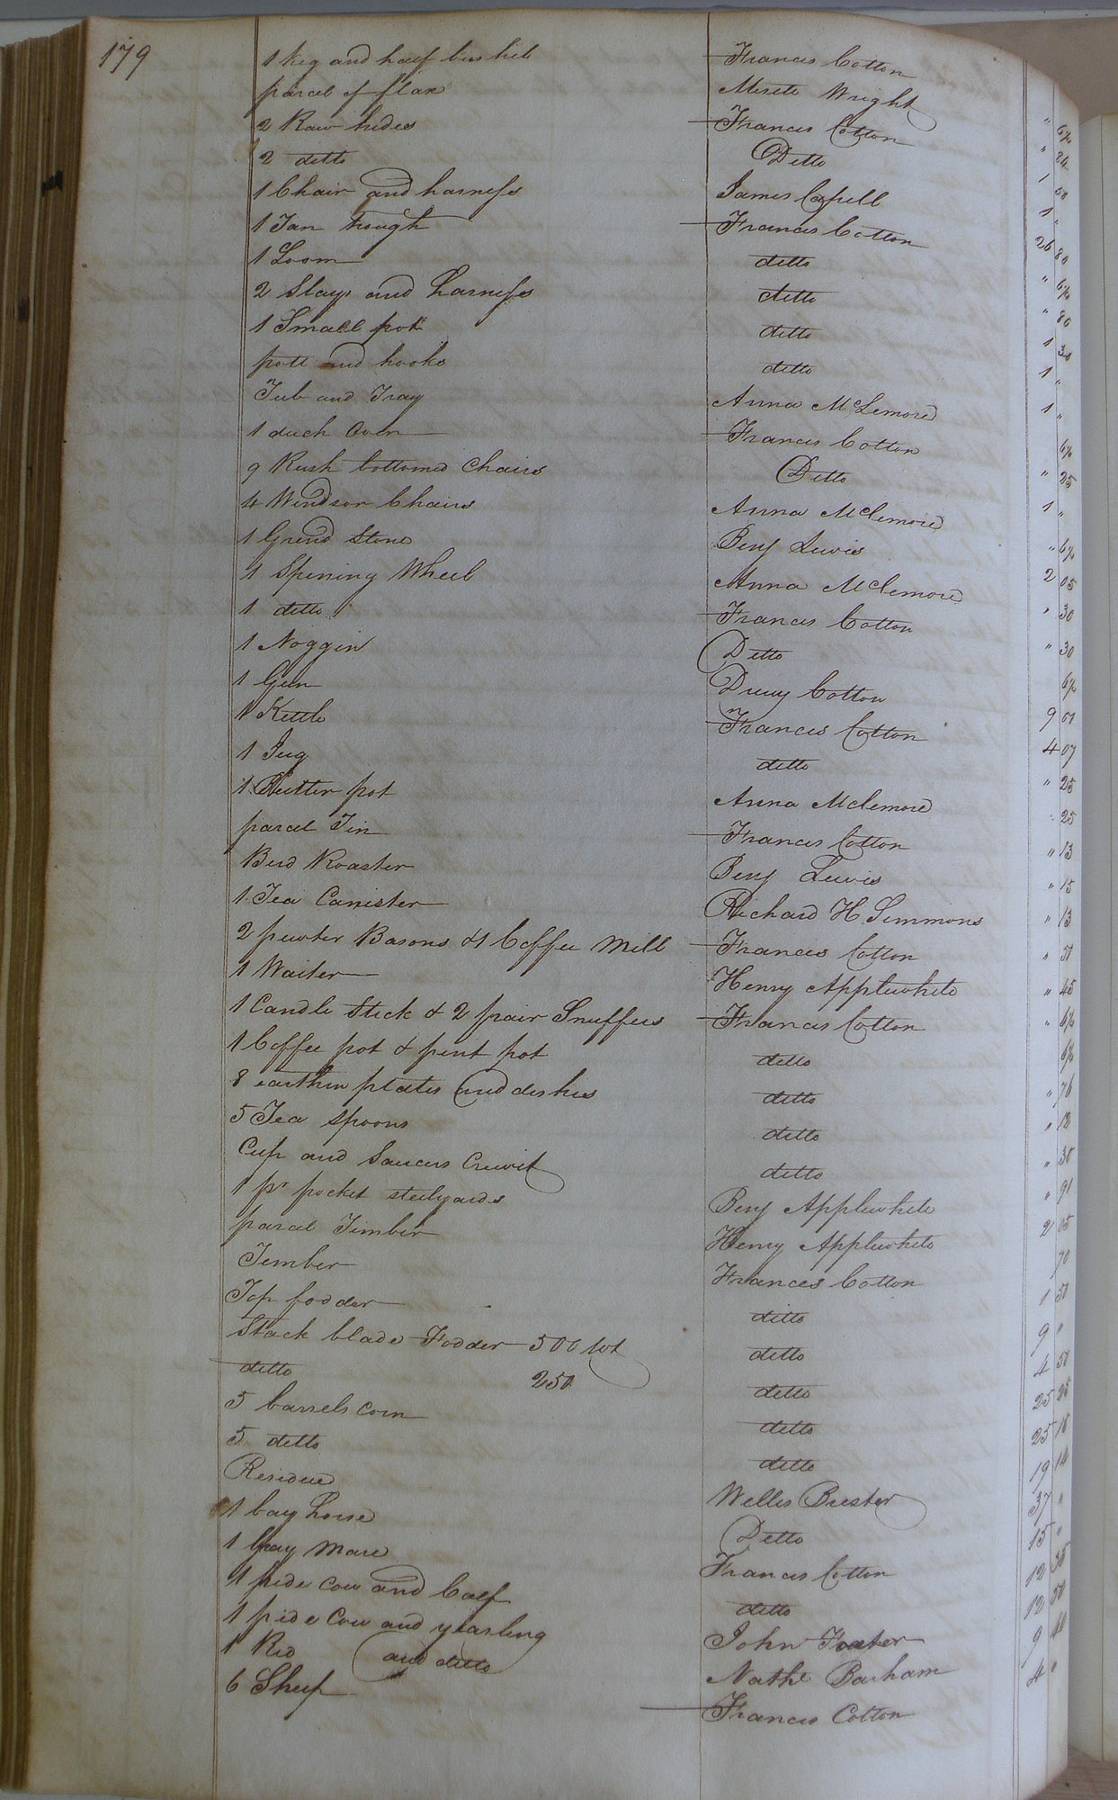 179
1 keg and half bushel Francis Cotton
parcel of flax Wright " 6¼
2 Raw hides Francis Cotton " 84
2 ditto Ditto 1 50
1 Chair and harness James Capell 1 "
1 Tan trough Francis Cotton 26 80
1 Loom ditto " 6¼
2 Slays and harness ditto " 80
1 Small pot ditto 1 30
pott and hooks ditto 1 "
Tub and Tray Anna McLemore 1 "
1 duch Oven Francis Cotton 6¼
9 Rush bottomed Chairs Ditto " 25
4 Windsor Chairs Anna McLemore 1 "
1 Grind Stone Benj Lewis " 6¼
1 Spining Wheel Anna McLemore 2 05
1 ditto Francis Cotton " 30
1 Noggin Ditto " 30
1 Gun Drury Cotton 6¼
1 Kettle Francis Cotton 9 01
1 Jug ditto 4 07
1 Butter pot Anna McLemore " 25
parcel Tin Francis Cotton " 25
Bird Roaster Benj Lewis " 13
1 Tea Canister Richard H Simmons " 15
2 pewter Basons & 1 Coffee Mill Francis Cotton " 13
1 Waiter Henry Applewhite " 51
1 Candle Stick & 2 pair Snuffers Francis Cotton " 45
1 Coffee pot & pint pot ditto " 6¼
8 earthen plates and dishes ditto 6¼
5 Tea spoons ditto " 76
Cup and Saucers Cruvit ditto "
1 pr pocket steelyards Benj Applewhite "
parcel Timber Henry Applewhite " 91
Timber Francis Cotton 2 05
Top fodder ditto 70
Stack blade Fodder 500 wt ditto 1 50
ditto 250 ditto 9 "
5 barrels corn ditto 4 50
5 ditto ditto 25
Residue Willis 25
1 bay horse Ditto 19
1 Gray Mare Francis Cotton 37 "
1 pide cow and Calf ditto 15 "
1 pide Cow and yearling John 12
1 Red and ditto Nathl Barham 12 50
6 Sheep Francis Cotton 9
4 "